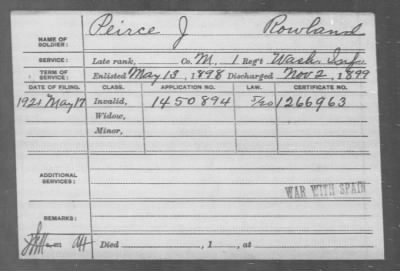 NAME OF SOLDIER: Peirce J Rowland
SERVICE: Late rank, Co. M, 1 Reg't Wash. Inf.
TERM OF SERVICE: Enlisted May 13, 1898 Discharged Nov 2, 1899
DATE OF FILING. CLASS. APPLICATION NO. LAW. CERTIFICATE NO.
1921 May 17 Invalid, 1450894 5/20 1266963
Widow,
Minor,
ADDITIONAL SERVICES:
WAR WITH SPAIN
REMARKS:
Died , 1 , at